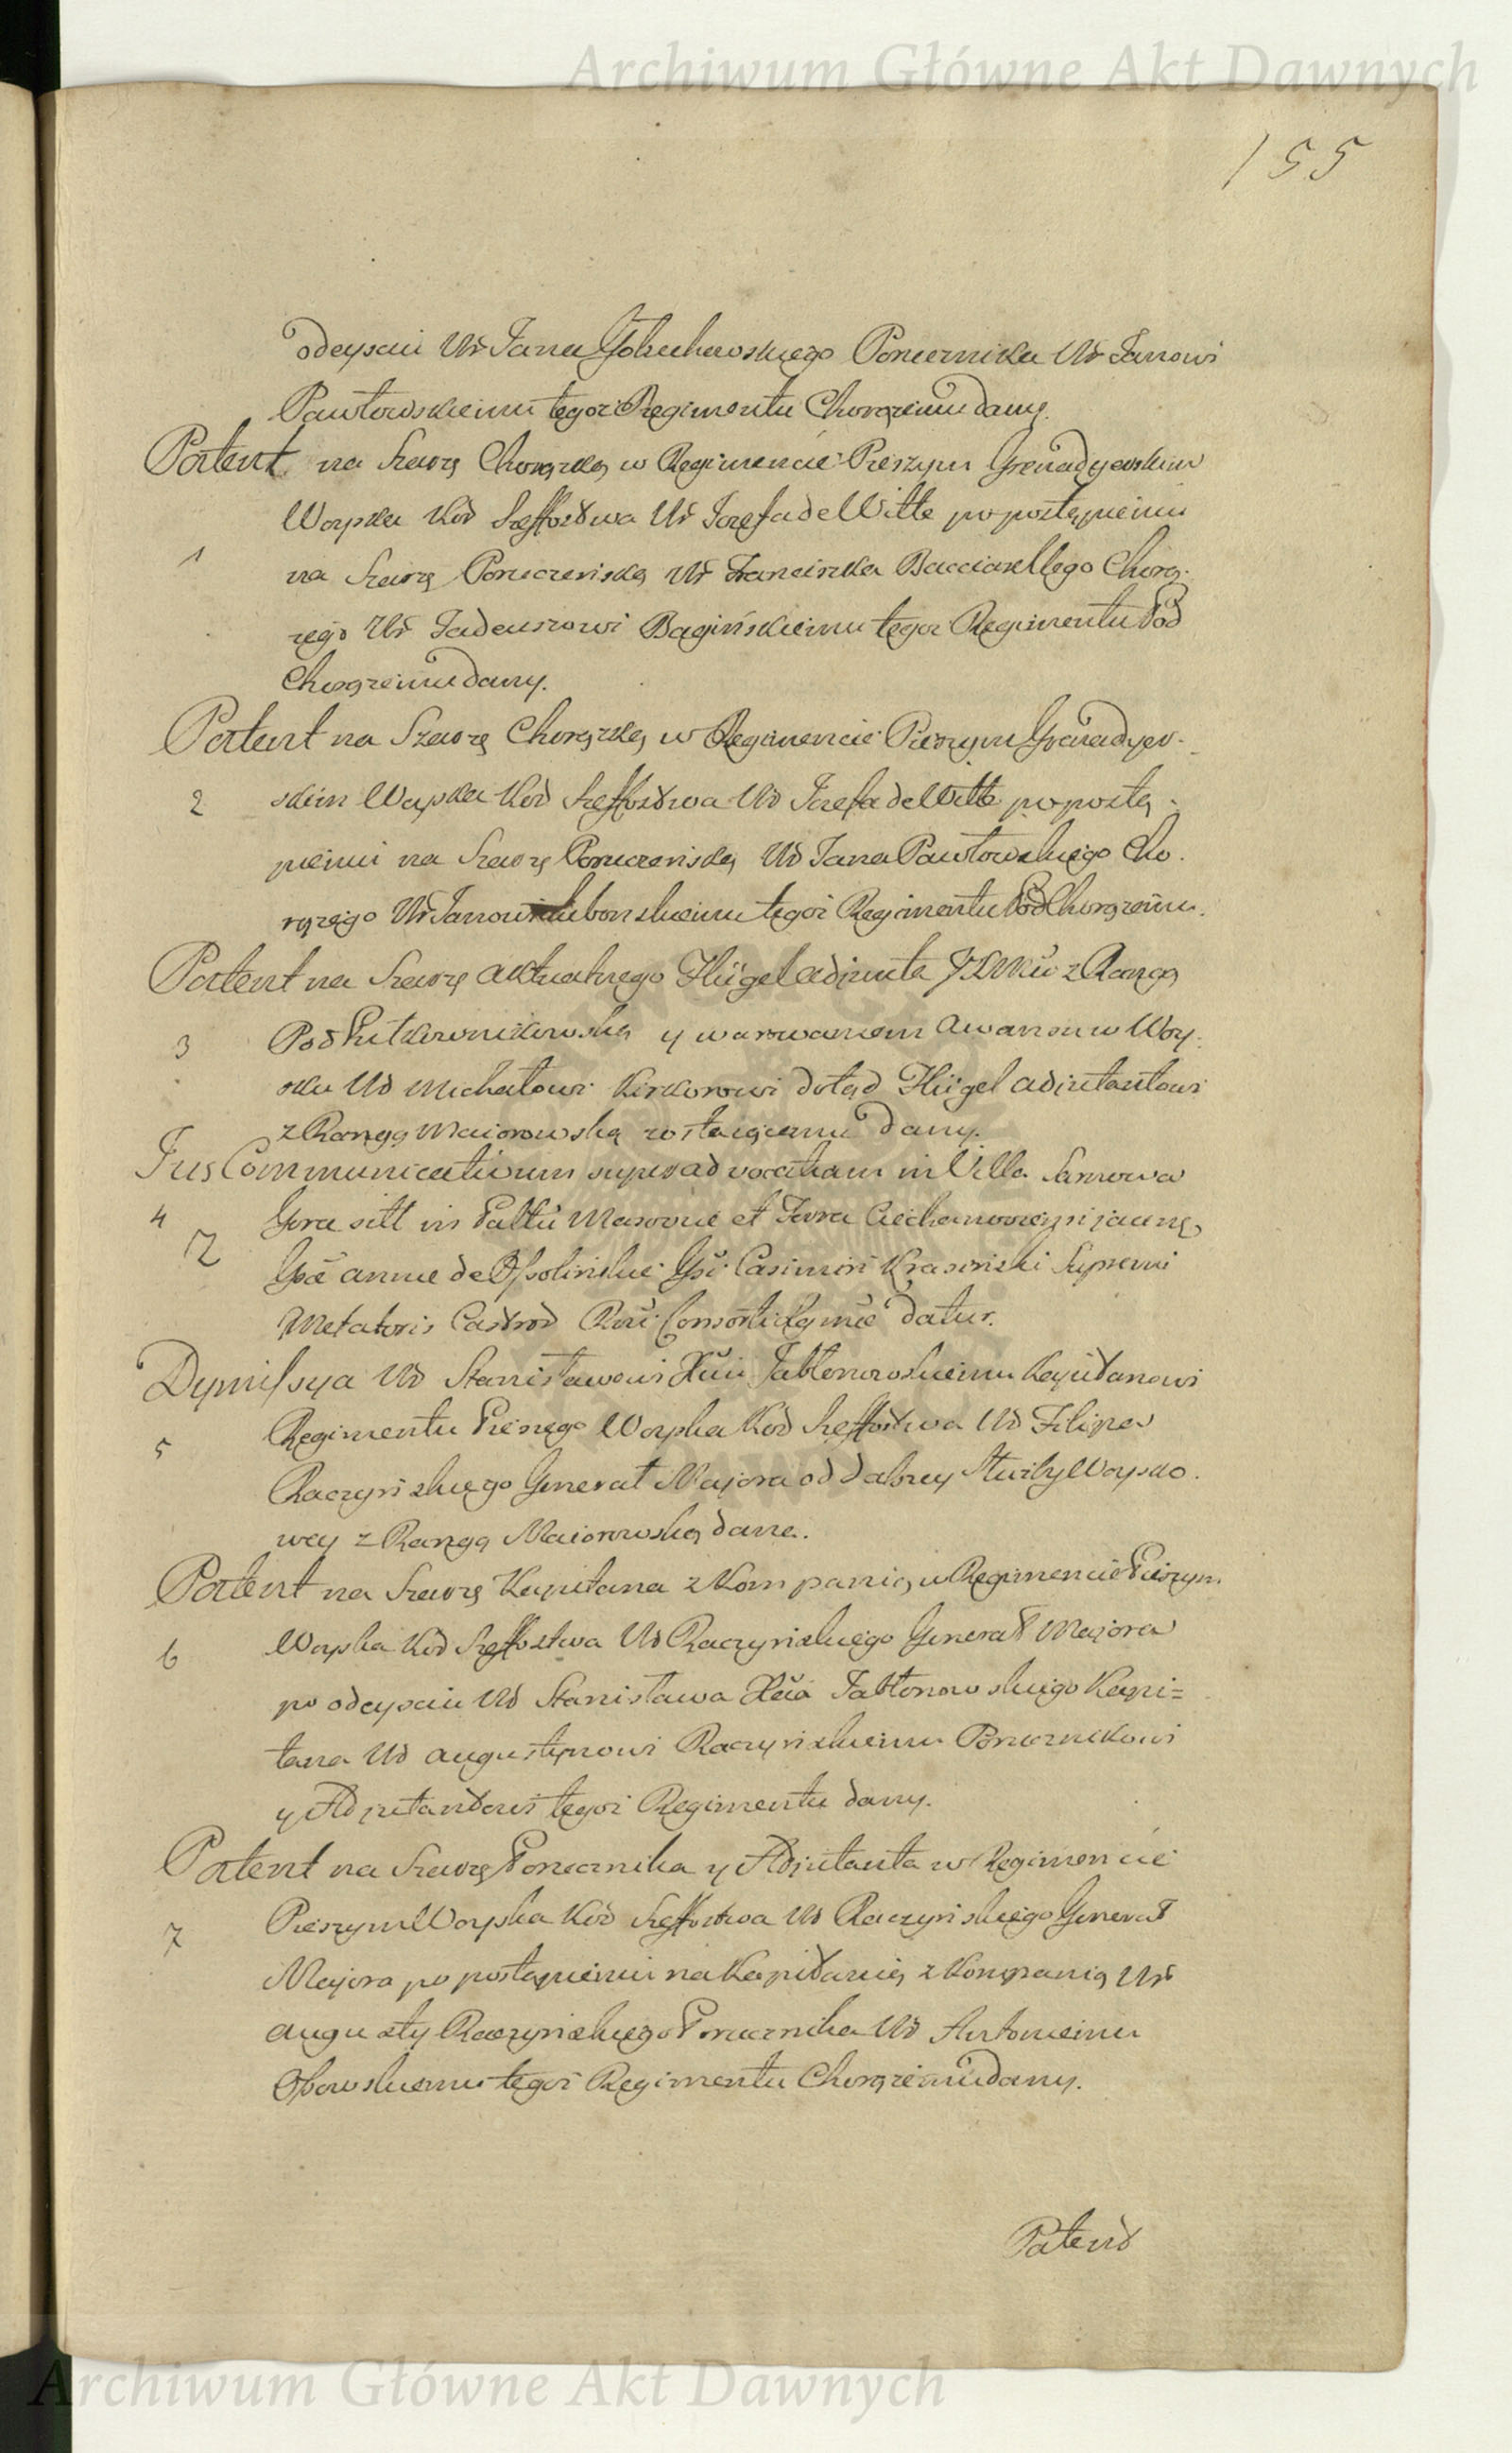 Archiwum Główne Akt Dawnych
155
odeyściu Ur Jana Gołuchowskiego Porucznika Ur Janowi
Pawłowskiemu tegoż Regimentu Chorążemu dany.
Patent na Szarżę Chorążką w Regimencie Pieszym Grenadyerskim
Woyska Kor Szeffostwa Ur Jozefa de Witte po postąpieniu
1 na Szarżę Poruczeńską Ur Franciszka Bacciarellego Chorą-
żego Ur Tadeuszowi Bagińskiemu tegoż Regimentu Pod
Chorążemu dany.
Patent na Szarżę Chorążką w Regimencie Pieszym Grenadyer-
2 skim Woyska Kor Szeffostwa Ur Jozefa de Witte po postą-
pieniu na Szarżę Poruczeńską Ur Jana Pawłowskiego Cho-
rążego Ur Janowi tegoż Regimentu Pod Chorążemu.
Patent na Szarżę aktualnego Flügel adjuta z Rangą
3 Podpułkownikowską y warowaniem awansu w Woy-
sku Ur Michałowi Kirkorowi dotąd Flügel adiutantowi
z Rangą Maiorowską zostaiącemu dany.
Jus Communicativum super advocatiam in Villa Sarnowa
4 Gora sitt in Pallu Masoviæ et Terra Ciechanoviensi jacen
2 Gsæ Annæ de Ossolińskie Gsi Casimiri Krasiński Supremi
Metatoris Castror Rni Consorti Lgmæ datur.
Dymissya Ur Stanisławowi Xciu Jabłonowskiemu Kapitanowi
Regimentu Pieszego Woyska Kor Szeffostwa Ur Filipa
5 Raczyńskiego Generał Majora od dalszey służby Woysko-
wey z Rangą Maiorowską dana.
Patent na Szarżę Kapitana z Kompanią w Regimencie Pieszym
6 Woyska Kor Szeffostwa Ur Raczyńskiego Generał Majora
po odeyściu Ur Stanisława Xcia Jabłonowskiego Kapi=
tana Ur Augustynowi Raczyńskiemu Porucznikowi
y Adjutantowi tegoż Regimentu dany.
Patent na Szarżę Porucznika y Adjutanta w Regimencie
7 Pieszym Woyska Kor Szeffostwa Ur Raczyńskiego Generał
Majora po postąpieniu na Kapitanią z Kompanią Ur
Augusty Raczyńskiego Porucznika Ur Antoniemu
Ossowskiemu tegoż Regimentu Chorążemu dany.
Patent
Archiwum Główne Akt Dawnych